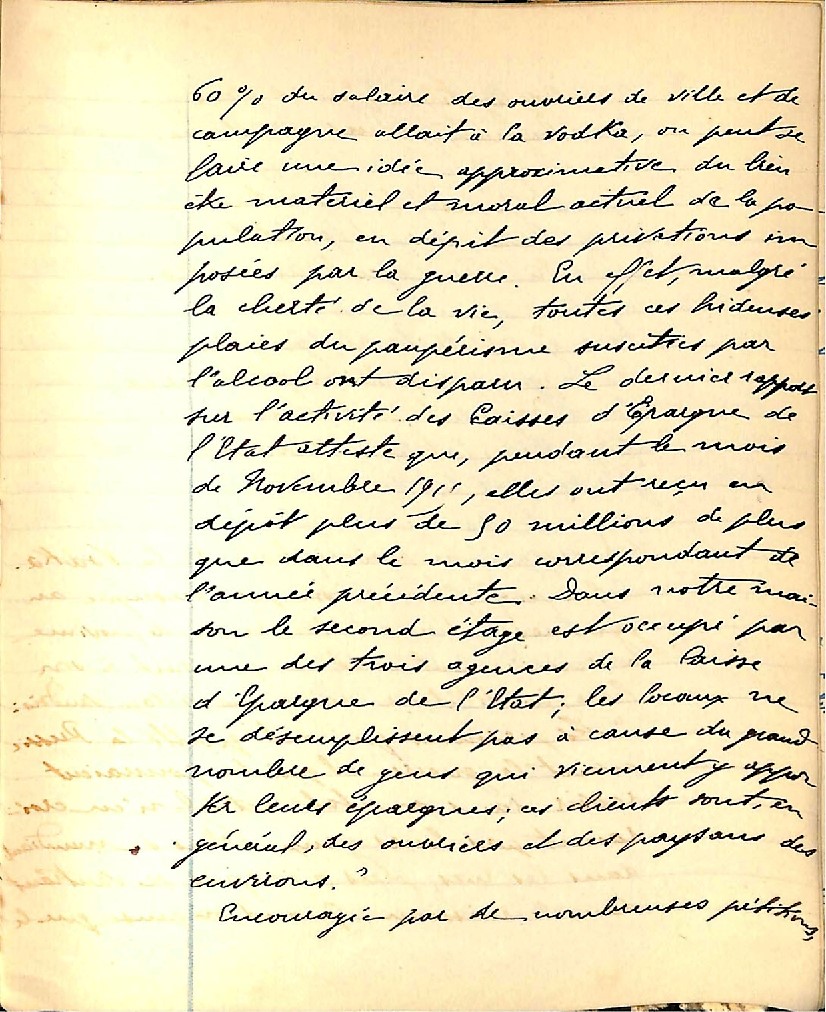 60 % du salaire des ouvriers de ville et de
campagne allait à la vodka, on peut se
faire une idée approximative du bien
être matériel et moral actuel de la po-
pulation, en dépit des privations im
posées par la guerre. En effet, malgré
la cherté de la vie, toutes ces hideuses
plaies du paupérisme suscitées par
l'alcool ont disparu. Le dernier rapport
sur l'activité des Caisses d'Épargne de
l'Etat atteste que, pendant le mois
de Novembre, elles ont reçu en
dépôt plus de 50 millions de plus
que dans le mois correspondant de
l'année précédente. Dans notre mai-
son le second étage est occupé par
une des trois agences de la Caisse
d'Epargne de l'Etat; les locaux ne
se désemplissent pas à cause du grand
nombre de gens qui viennent y appor
ter leurs épargnes; ces clients sont, en
général, des ouvriers et des paysans des
environs."
Encouragée par de nombreuses pétitions,